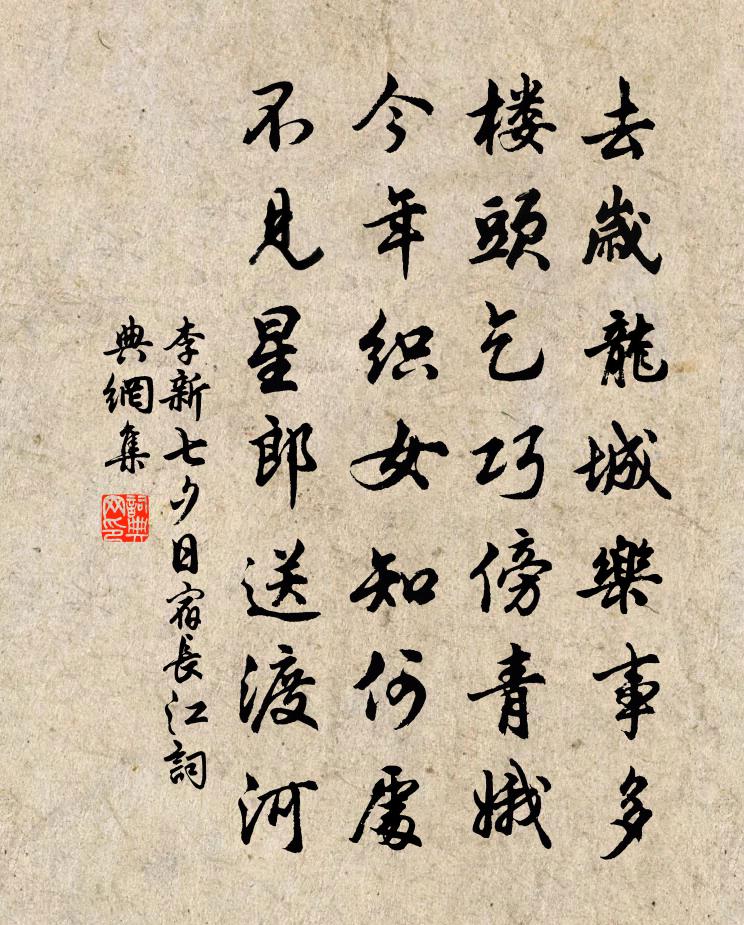 去歲龍城樂事多
楼頭乞巧傍青娥
今年織女知何處
不見星郎送渡河
李新七夕日宿長江詞
典網集
詞典
网印